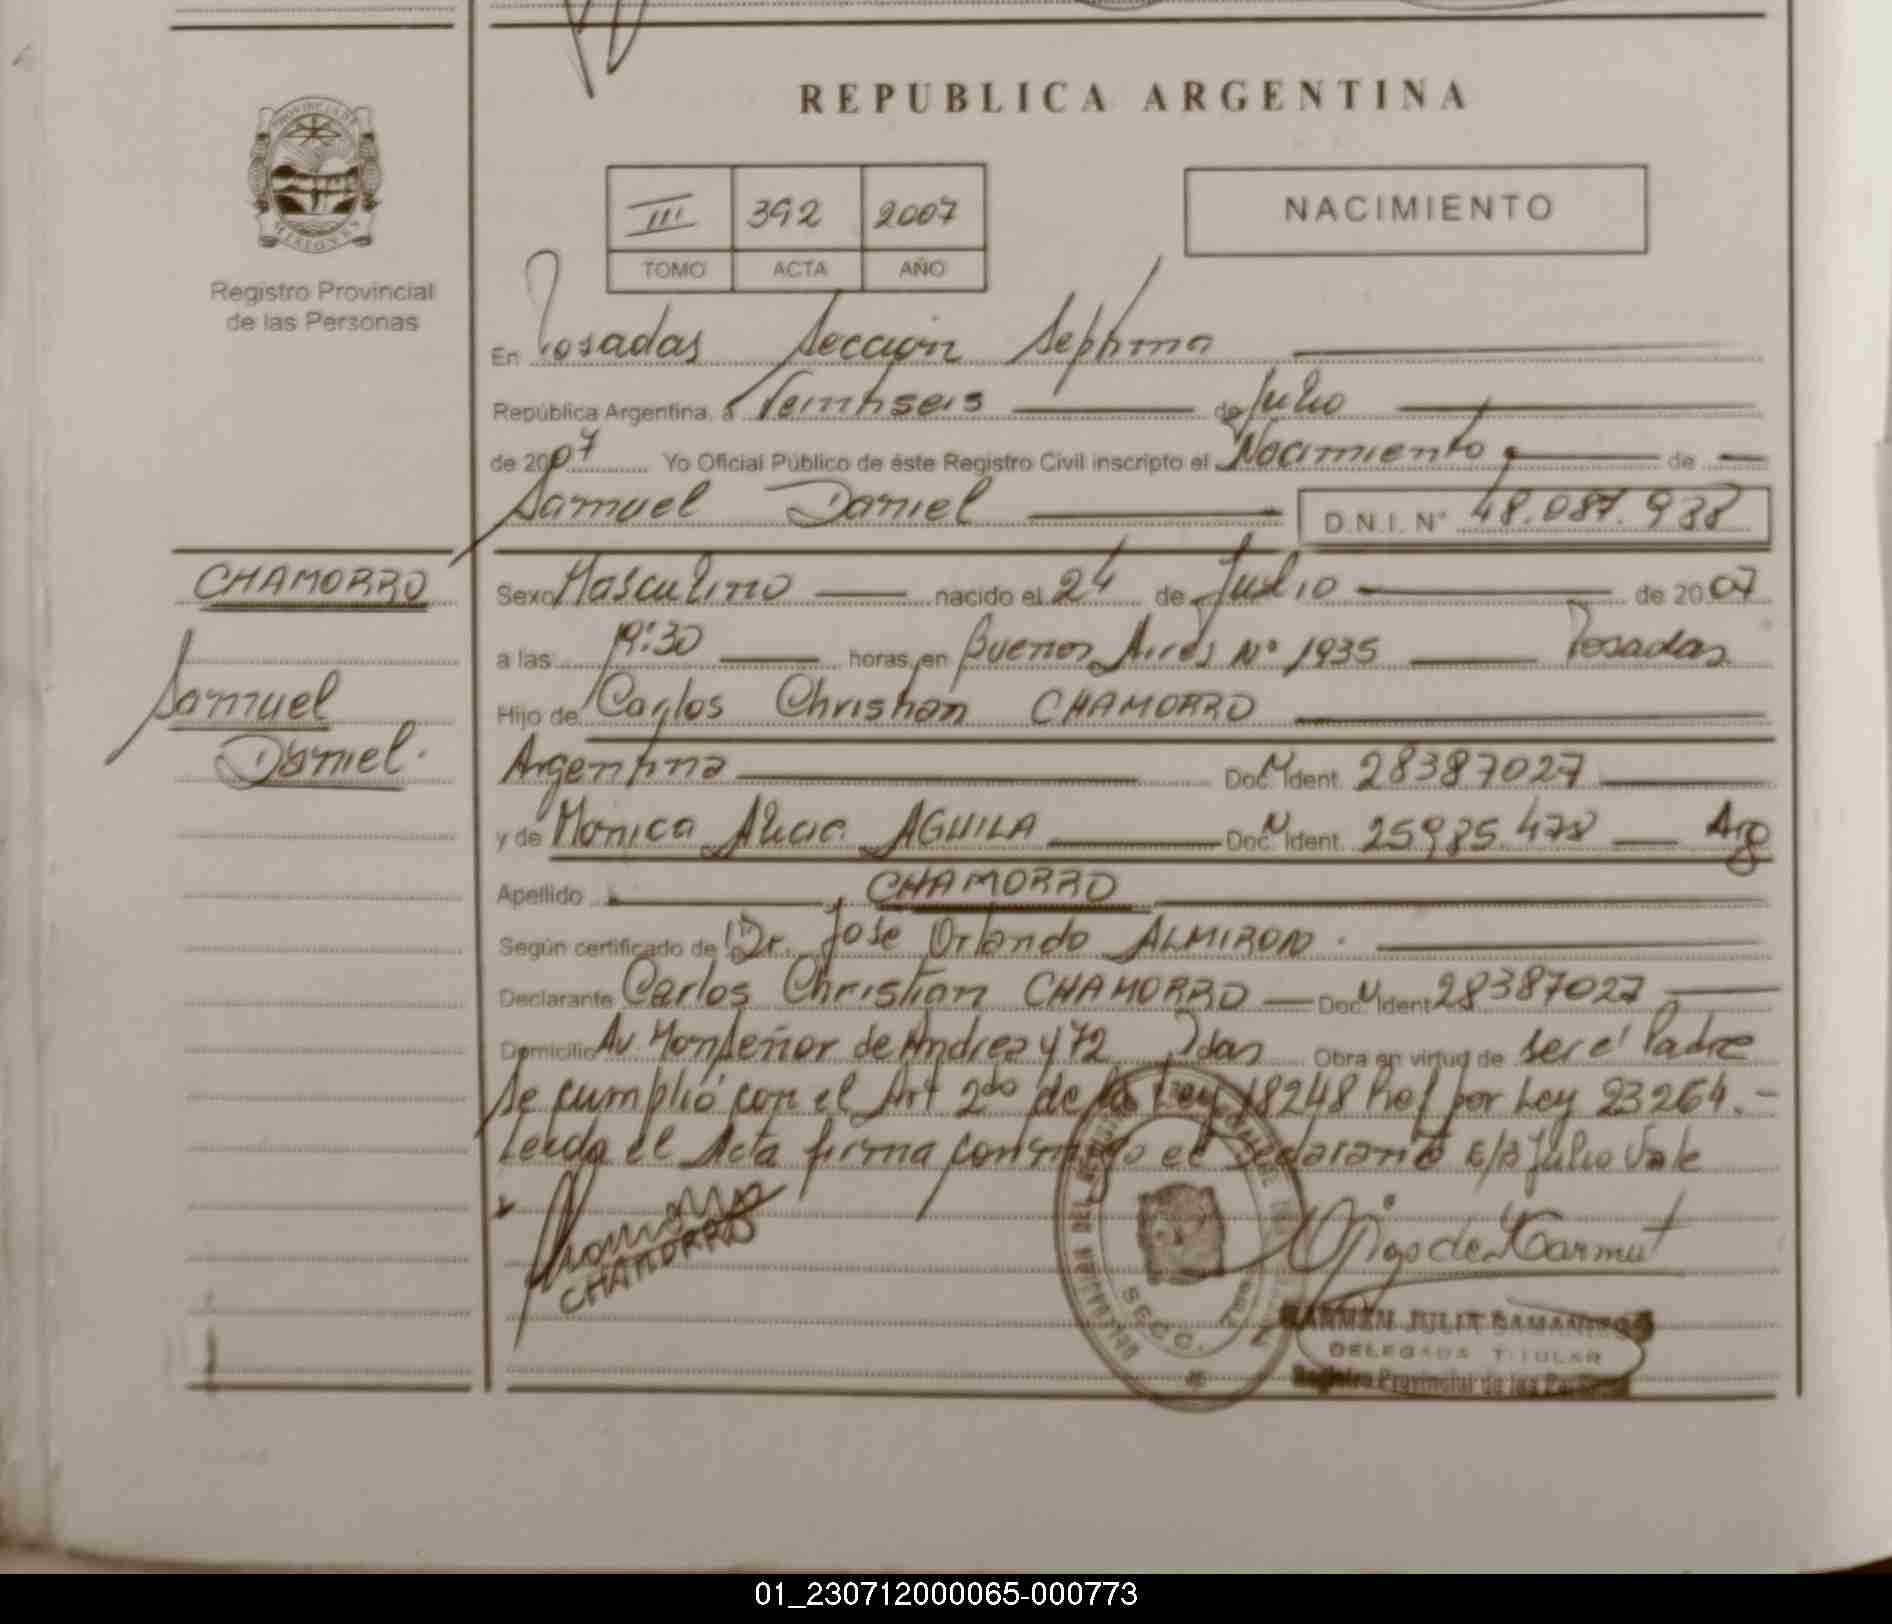 REPUBLICA ARGENTINA
PROVINCIA DE MISIONES
Registro Provincial
de las Personas
III 392 2007
TOMO ACTA AÑO
NACIMIENTO
En Posadas Seccion Septima
República Argentina, a Veintiseis de Julio
de 2007 Yo Oficial Público de éste Registro Civil inscripto el Nacimiento de
Samuel Daniel D.N.I. N° 48.087.938
CHAMORRO
Samuel
Daniel.
Sexo Masculino nacido el 24 de Julio de 2007
a las 19:30 horas, en Buenos Aires N° 1935 Posadas
Hijo de Carlos Christian CHAMORRO
Argentina Doc. Ident. 28387027
y de Monica Alicia AGUILA Doc. Ident. 25985.478 Arg
Apellido CHAMORRO
Según certificado de Dr. Jose Orlando ALMIRON.
Declarante Carlos Christian CHAMORRO Doc. Ident. 28387027
Domicilio Av. Monseñor de Andrea y 72 Pdas Obra en virtud de ser el Padre
Se cumplió con el Art 2do de la Ley 18248 Ref por Ley 23264.-
Leida el Acta firma conmigo el Declarante E/R Julio Vale
CHAMORRO
SECC. 7ma
CARMEN JULIA SAMANIEGO
DELEGADA TITULAR
Registro Provincial de las Personas
01_230712000065-000773